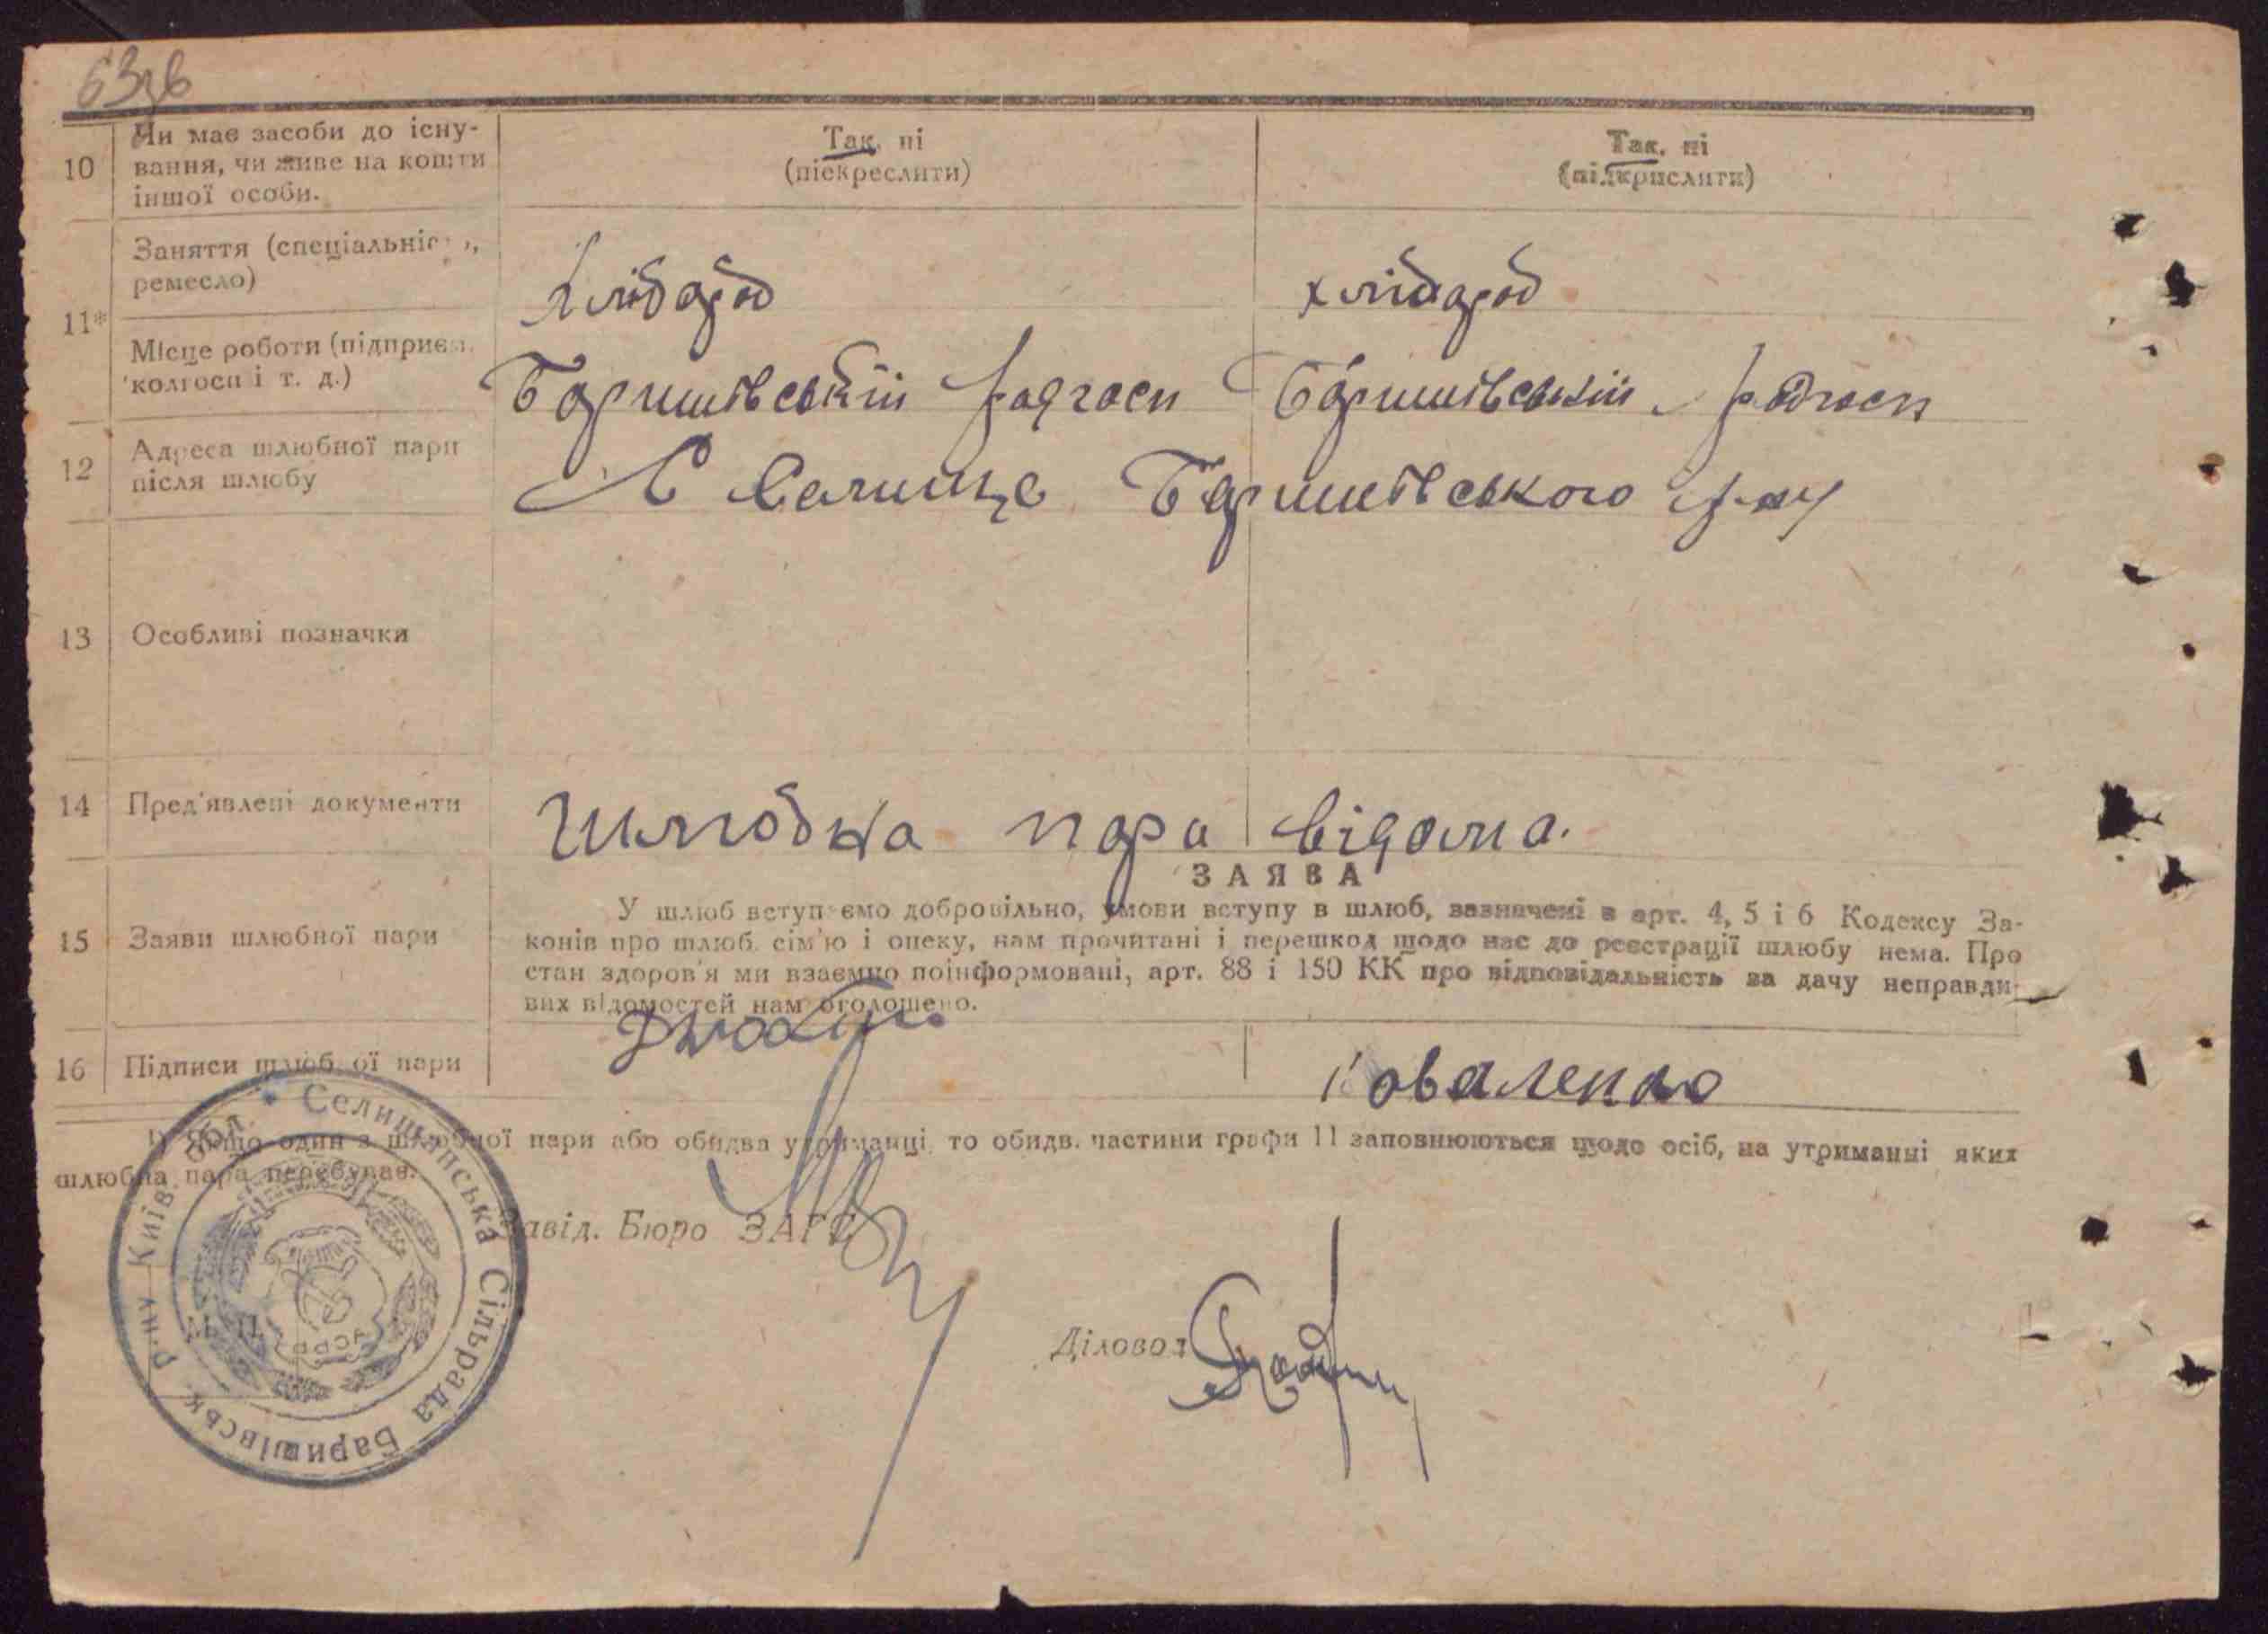 63зв
10
Чи має засоби до існу-
вання, чи живе на кошти
іншої особи.
Так, ні
(піекреслити)
Так, ні
(підкрислити)
11*
Заняття (спеціальність,
ремесло)
хлібароб
хлібароб
Місце роботи (підприєм.
колгосп і т. д.)
Баришівський радгосп
Баришівський радгосп
12
Адреса шлюбної пари
після шлюбу
С Селище Баришівського р-ну
13
Особливі позначки
14
Пред'явлені документи
Шлюбна пара відома.
ЗАЯВА
15
Заяви шлюбної пари
У шлюб вступаємо добровільно, умови вступу в шлюб, зазначені в арт. 4, 5 і 6 Кодексу За-
конів про шлюб, сім'ю і опеку, нам прочитані і перешкод щодо нас до реєстрації шлюбу нема. Про
стан здоров'я ми взаємно поінформовані, арт. 88 і 150 КК про відповідальність за дачу неправди-
вих відомостей нам оголошено.
16
Підписи шлюбної пари
Коваленко
1) Якщо один з шлюбної пари або обидва утриманці, то обидв. частини графи 11 заповнюються щодо осіб, на утриманні яких
шлюбна пара перебуває.
Завід. Бюро ЗАГС
Діловод
Селищанська Сільрада Баришівськ. р-ну Київ. обл.
УСРР